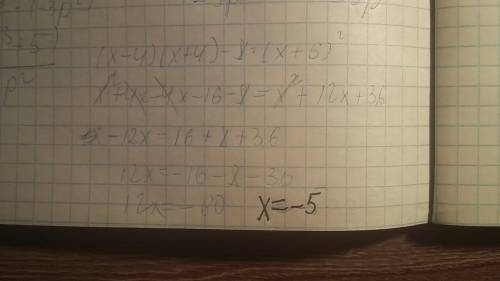 (x-4)(x+4)-8=(x+6)²
x²+4x-4x-16-8=x²+12x+36
-12x=16+8+36
12x=-16-8-36
12x=-60 x=-5